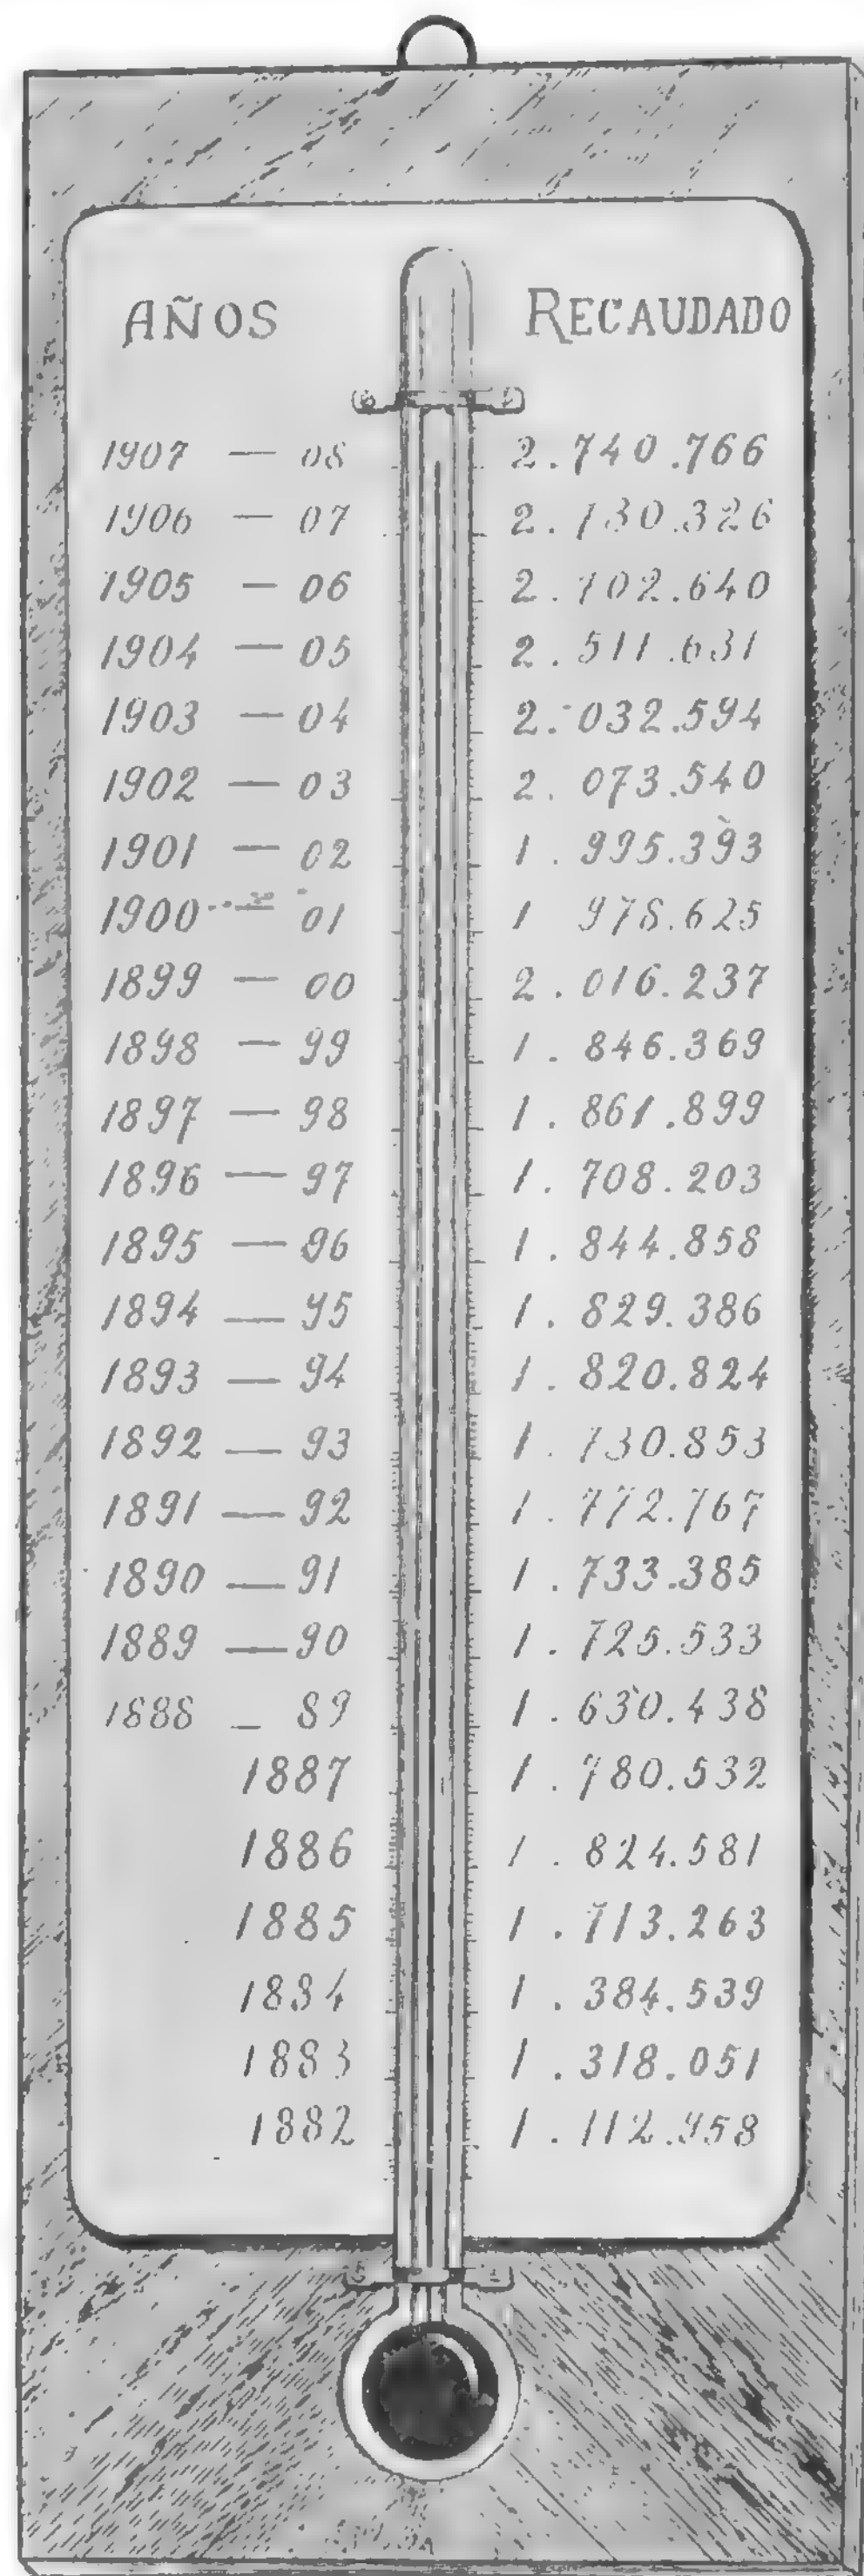 AÑOS RECAUDADO
1907 — 08 2.740.766
1906 — 07 2.130.326
1905 — 06 2.102.640
1904 — 05 2.511.631
1903 — 04 2.032.594
1902 — 03 2.073.540
1901 — 02 1.995.393
1900 — 01 1 978.625
1899 — 00 2.016.237
1898 — 99 1.846.369
1897 — 98 1.861.899
1896 — 97 1.708.203
1895 — 96 1.844.858
1894 — 95 1.829.386
1893 — 94 1.820.824
1892 — 93 1.730.853
1891 — 92 1.772.767
1890 — 91 1.733.385
1889 — 90 1.725.533
1888 — 89 1.630.438
1887 1.780.532
1886 1.824.581
1885 1.713.263
1884 1.384.539
1883 1.318.051
1882 1.112.958